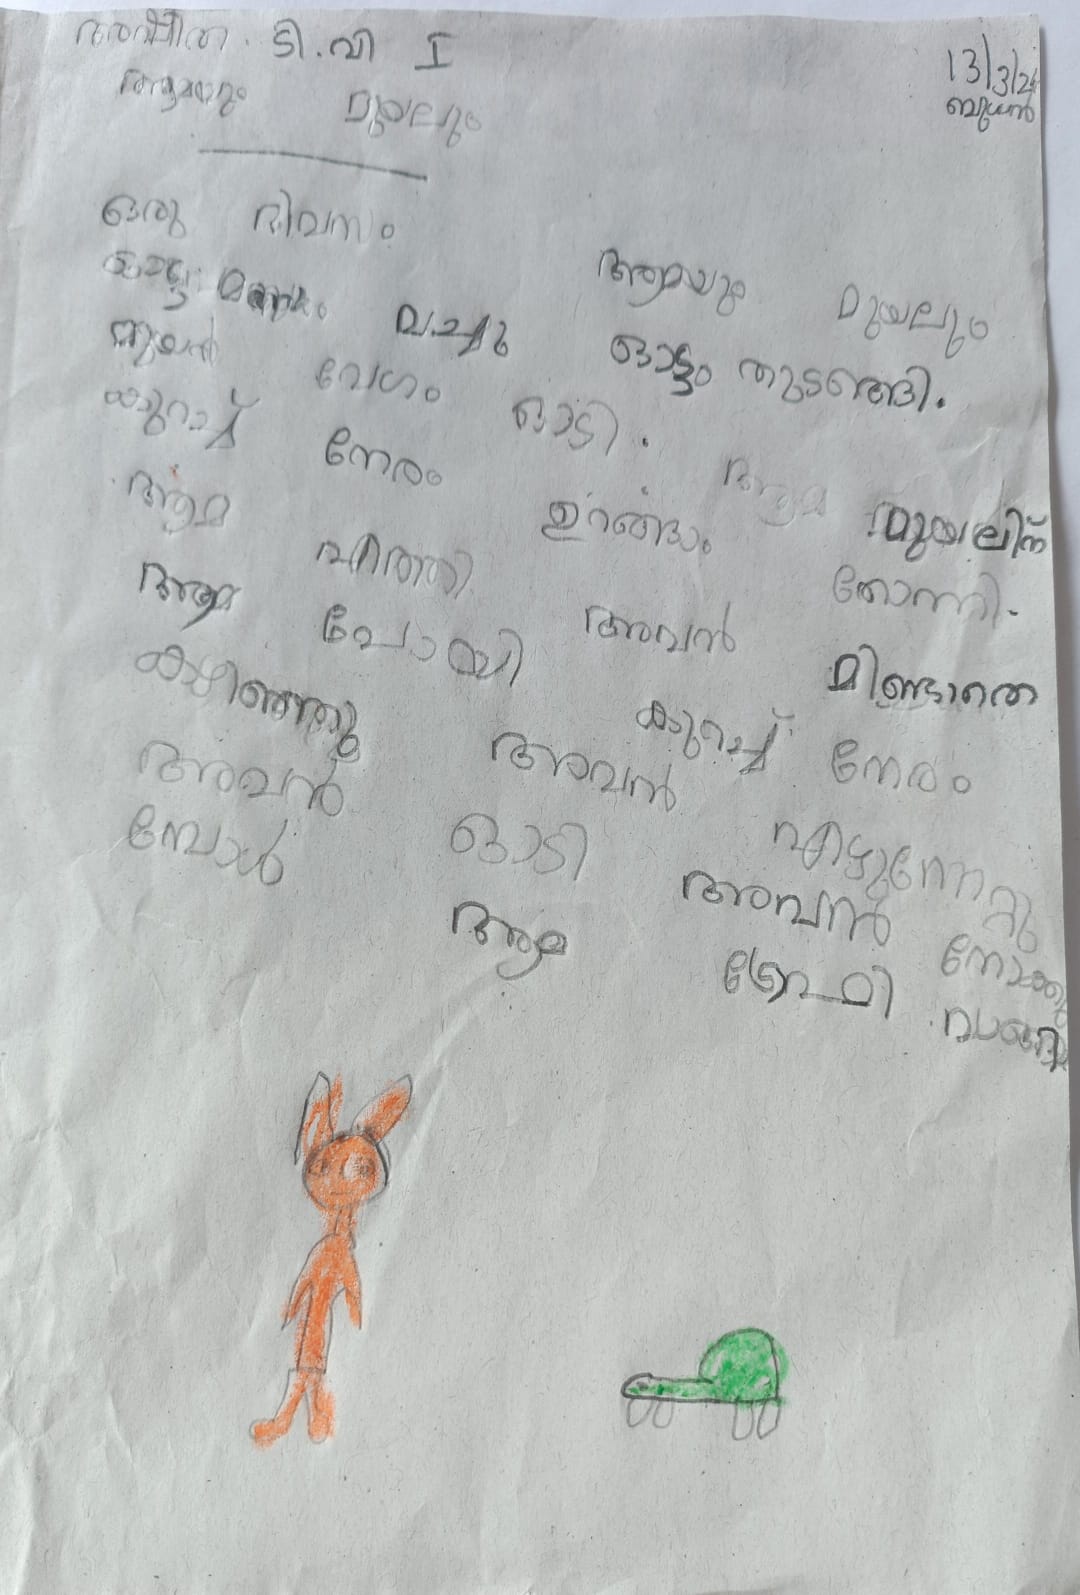 ടി.വി I
13/3/2
ബുധൻ
ആമയും മുയലും
ഒരു ദിവസം ആമയും മുയലും
ഓട്ട മത്സരം വച്ചു ഓട്ടം തുടങ്ങി.
മുയൽ വേഗം ഓടി. ആമ മുയലിന്
കുറച്ച് നേരം ഉറങ്ങാം തോന്നി.
ആമ എത്തി അവൻ മിണ്ടാതെ
ആമ പോയി കുറച്ച് നേരം
കഴിഞ്ഞു അവൻ എഴുന്നേറ്റു
അവൻ ഓടി അവൻ നോക്കു
മ്പോൾ ആമ ട്രോഫി